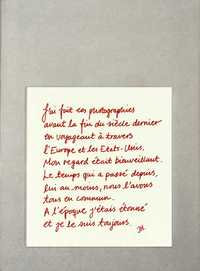 J'ai fait ces photographies
avant la fin du siècle dernier
en voyageant à travers
l'Europe et les Etats-Unis.
Mon regard était bienveillant.
Le temps qui a passé depuis,
lui au moins, nous l'avons
tous en commun.
A l'époque j'étais étonné
et je le suis toujours.